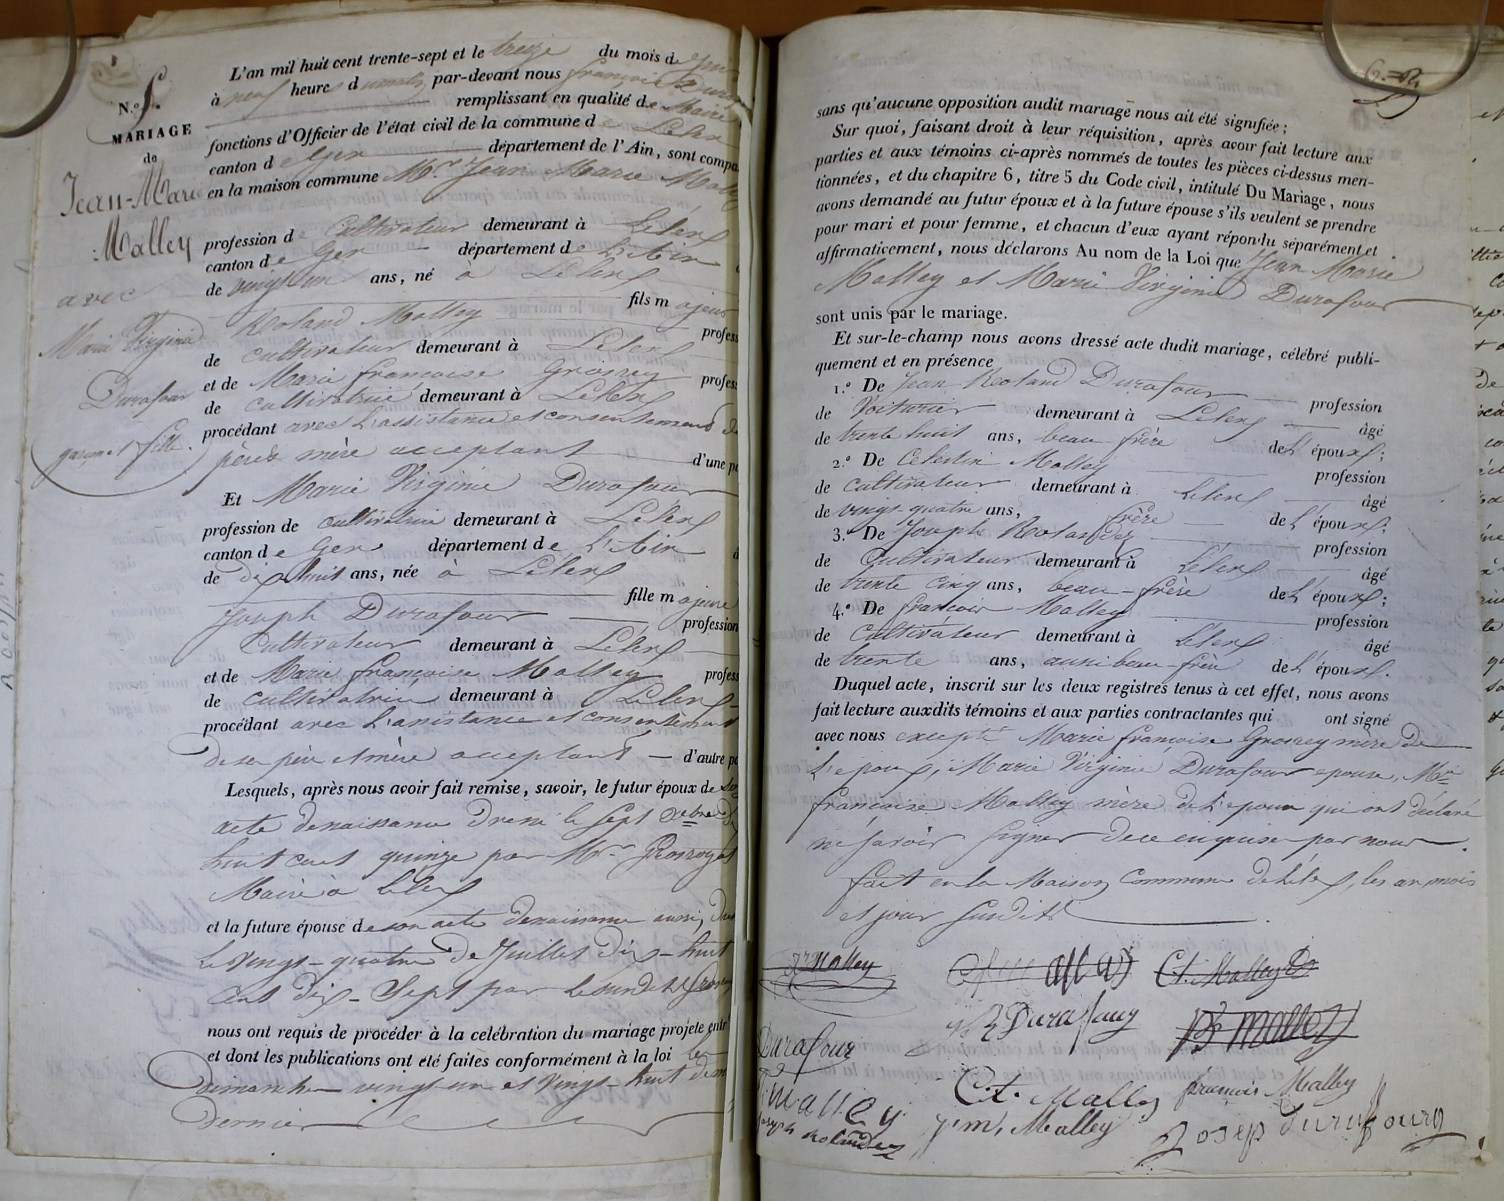 N.o 5.
MARIAGE
de
Jean-Marie
Malley
avec
Marie Virginie
Durafour
garçon et fille.
L'an mil huit cent trente-sept et le treize du mois de
à neuf heures du matin, par-devant nous françois
remplissant en qualité de Maire
fonctions d'Officier de l'état civil de la commune de Lelex
canton de Gex département de l'Ain, sont compa
en la maison commune Mr. Jean Marie Malley
profession de Cultivateur demeurant à Lelex
canton de Gex département de L'Ain
de vingt un ans, né à Lelex
fils majeur
Roland Malley profess
de cultivateur demeurant à Lelex
et de Marie françoise Grosrey profess
de cultivatrice demeurant à Lelex
procédant avec L'assistance et consentement de
père et mère acceptant d'une pa
Et Marie Virginie Durafour
profession de cultivatrice demeurant à Lelex
canton de Gex département de L'Ain d
de dix huit ans, née à Lelex
fille majeure
Joseph Durafour profession
Cultivateur demeurant à Lelex
et de Marie françoise Malley profess
de cultivatrice demeurant à Lelex
procédant avec L'assistance et consentement
de ses père et mère acceptant — d'autre pa
Lesquels, après nous avoir fait remise, savoir, le futur époux de son
acte de naissance dressé le sept Xbre
huit cent quinze par Mr
Maire à Lelex
et la future épouse de son acte de naissance aussi
le vingt-quatre de Juillet dix-huit
cent dix-sept par le susdit
nous ont requis de procéder à la celébration du mariage projeté entr
et dont les publications ont été faites conformément à la loi les
dimanche vingt un et vingt-huit
dernier
sans qu'aucune opposition audit mariage nous ait été signifiée ;
Sur quoi, faisant droit à leur réquisition, après avoir fait lecture aux
parties et aux témoins ci-après nommés de toutes les pièces ci-dessus men-
tionnées, et du chapitre 6, titre 5 du Code civil, intitulé Du Mariage, nous
avons demandé au futur époux et à la future épouse s'ils veulent se prendre
pour mari et pour femme, et chacun d'eux ayant répondu séparément et
affirmativement, nous déclarons Au nom de la Loi que Jean Marie
Malley et Marie Virginie Durafour
sont unis par le mariage.
Et sur-le-champ nous avons dressé acte dudit mariage, célébré publi-
quement et en présence
1.o De Jean Roland Durafour profession
de Voiturier demeurant à Lelex âgé
de trente huit ans, beau frère de l'époux ;
2.o De Celestin Malley profession
de cultivateur demeurant à Lelex âgé
de vingt quatre ans, frère de l'époux ;
3.o De Joseph Rolandez profession
de Cultivateur demeurant à Lelex âgé
de trente cinq ans, beau-frère de l'époux ;
4.o De françois Malley profession
de Cultivateur demeurant à Lelex âgé
de trente ans, aussi beau-frère de l'époux.
Duquel acte, inscrit sur les deux registres tenus à cet effet, nous avons
fait lecture auxdits témoins et aux parties contractantes qui ont signé
avec nous excepté Marie françoise Grosrey mère de
L'epoux, Marie Virginie Durafour epouse, Mie
françoise Malley mère de l'epouse qui ont déclaré
ne savoir signer de ce enquise par nous.
fait en la Maison Commune de Lélex, les an mois
et jour susdits.
Malley Ct. Malley
Durafour Malley
Durafour
Ct. Malley françois Malley
Malley j. m. Malley Josep Durafourg
Joseph Rolandez